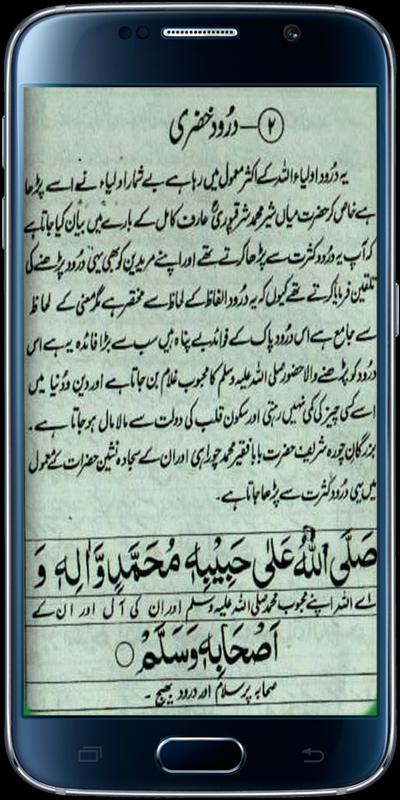 ۲ — درُود خضری
یہ درُود اولیاء اللہ کے اکثر معمول میں رہا ہے بے شمار اولیاء نے اسے پڑھا
ہے خاص کر حضرت میاں شیر محمد شرقپوریؒ عارف کامل کے بارے میں بیان کیا جاتا ہے
کہ آپ یہ درُود کثرت سے پڑھا کرتے تھے اور اپنے مریدین کو بھی یہی درُود پڑھنے کی
تلقین فرمایا کرتے تھے کیوں کہ یہ درُود الفاظ کے لحاظ سے مختصر ہے مگر معنی کے لحاظ
سے جامع ہے اس درُود پاک کے فوائد بے پناہ ہیں سب سے بڑا فائدہ یہ ہے اس
درُود کو پڑھنے والا حضور صلی اللہ علیہ وسلم کا محبوب غلام بن جاتا ہے اور دین و دُنیا میں
اسے کسی چیز کی کمی نہیں رہتی اور سکون قلب کی دولت سے مالا مال ہو جاتا ہے۔
بزرگانِ چورہ شریف حضرت بابا فقیر محمد چوراہی اور ان کے سجادہ نشین حضرات کے معمول
میں یہی درُود کثرت سے پڑھا جاتا ہے۔
صَلَّی اللّٰہُ عَلٰی حَبِیْبِہٖ مُحَمَّدٍ وَّاٰلِہٖ وَ
اے اللہ اپنے محبوب محمد صلی اللہ علیہ وسلم اور ان کی آل اور ان کے
اَصْحَابِہٖ وَسَلَّمْ ○
صحابہ پر سلام اور درود بھیج ۔